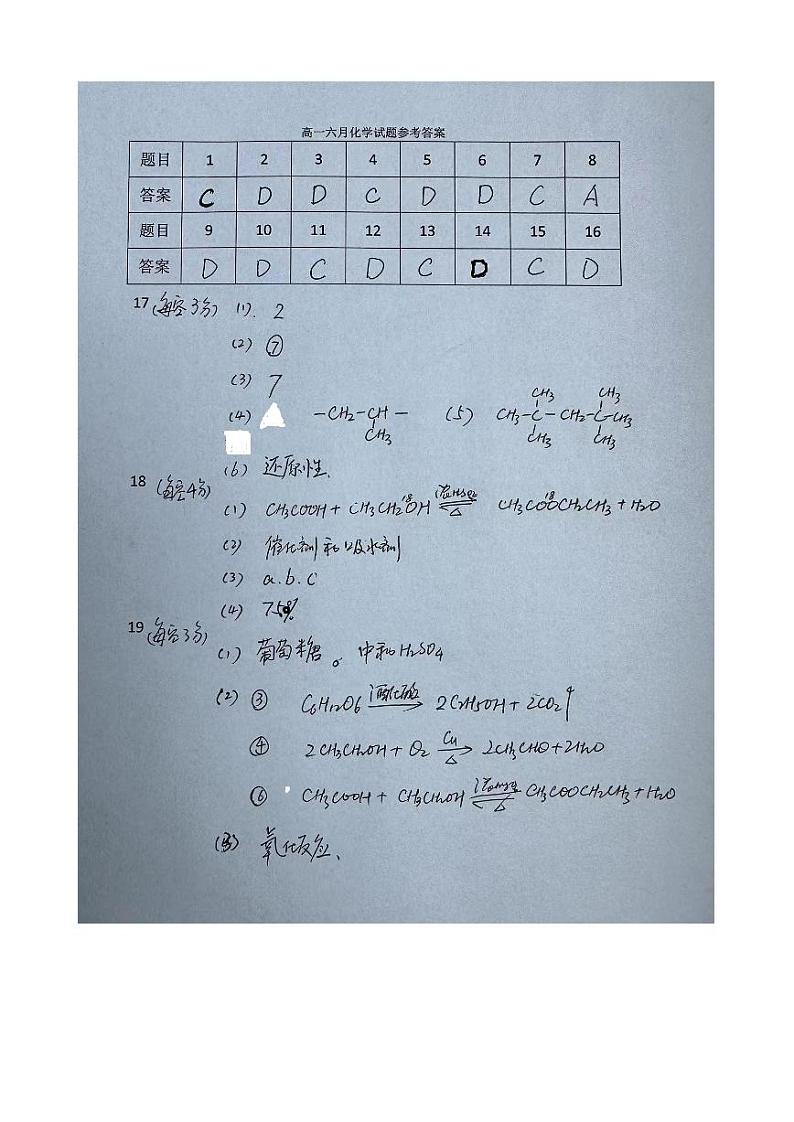 高一六月化学试题参考答案
题目 1 2 3 4 5 6 7 8
答案 C D D C D D C A
题目 9 10 11 12 13 14 15 16
答案 D D C D C D C D
17(每空3分) (1). 2
(2) ⑦
(3) 7
CH3 CH3
(4) －CH2－CH－ (5) CH3－C－CH2－C－CH3
CH3 CH3 CH3
(6) 还原性.
18 (每空4分)
(1) CH3COOH + CH3CH2¹⁸OH ⇌ 浓H2SO4 △ CH3CO¹⁸OCH2CH3 + H2O
(2) 催化剂和吸水剂
(3) a.b.c
(4) 75%
19 (每空3分)
(1) 葡萄糖。中和H2SO4
(2) ③ C6H12O6 酒化酶 → 2C2H5OH + 2CO2↑
④ 2CH3CH2OH + O2 Cu → △ 2CH3CHO + 2H2O
⑥ CH3COOH + CH3CH2OH 浓H2SO4 ⇌ △ CH3COOCH2CH3 + H2O
(3) 氧化反应、